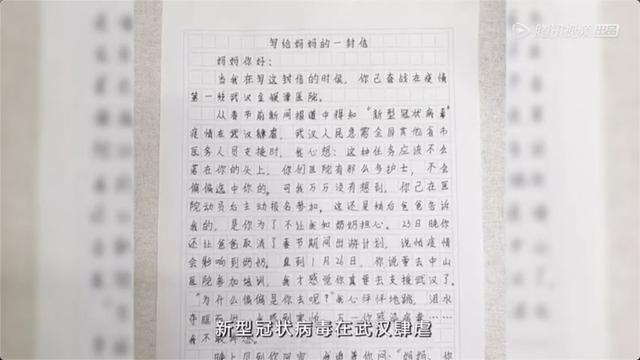 腾讯视频 出品
写给妈妈的一封信
妈妈你好：
当我在写这封信的时候，你已奋战在疫情
第一线武汉金银潭医院。
从春节前新闻报道中得知“新型冠状病毒”
疫情在武汉肆虐，武汉人民急需全国其他省市
医务人员支援时，我心想：这种任务应该不会
落在你的头上，你们医院有那么多护士，不会
偏偏选中你的。可我万万没有想到，你已在医
院动员后主动报名参加。这还是稍后爸爸告诉
我的，是你为了不让我和奶奶担心。23日晚你
还让爸爸取消了春节期间出游计划，说怕疫情
会影响到奶奶。直到1月26日，你说要去中山
医院参加培训，我才感觉你真要去支援武汉了。
“为什么偏偏是你去呢？”我心怦怦地跳，泪水
夺眶而出
新型冠状病毒在武汉肆虐
我不敢再想